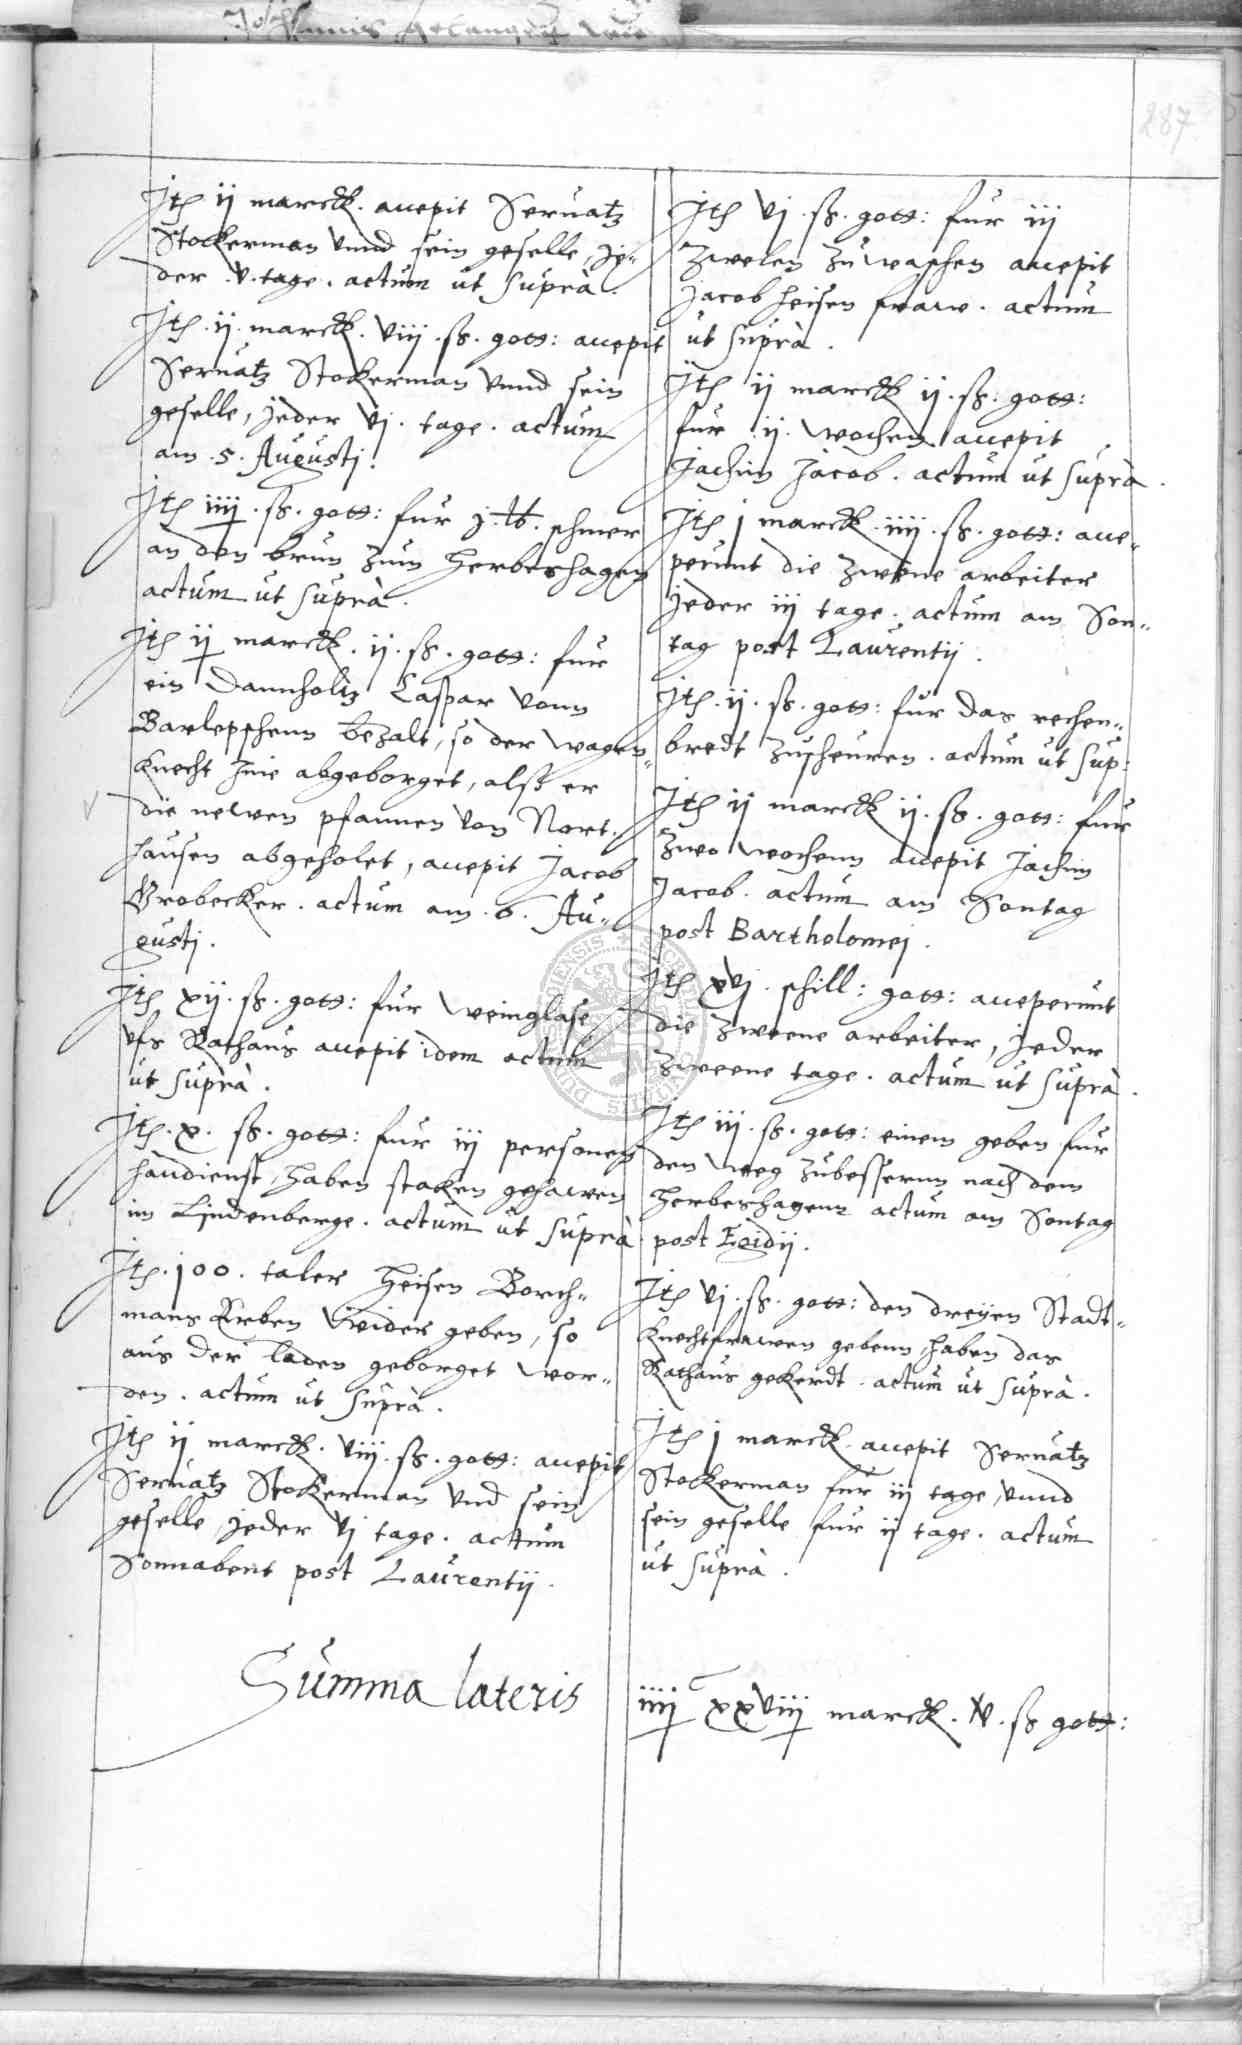 287
Jtem ij marck. accepit Seruatz
Stockerman vnnd sein geselle, je-
der .v. tage. actum ut suprà.
Jtem .ij. marck. viij .ß. gott: accepit
Seruatz Stockerman vnnd sein
geselle, jeder vj. tage. actum
am .5. Augustj.
Jtem iiij .ß. gott: fur j. lb. schmer
an den brun zum Herbershagen
actum ut suprà.
Jtem ij marck. ij. ß. gott: fur
ein Dannholtz Caspar vonn
Barlepschenn bezalt, so der wagen-
knecht jme abgeborget, alß er
die newen pfannen von Nort-
hausen abgeholet, accepit Jacob
Grobecker. actum am .6. Au-
gustj.
Jtem xij. ß. gott: fur weinglase
vfs Rathaus accepit idem actum
ut suprà.
Jtem .x. ß. gott: fur iij personen
handienst, haben staken gehawen
im Lindenberge. actum ut suprà
Jtem .100. taler Heisen Borch-
mans Erben wider geben, so
aus der laden geborget wor-
den. actum ut suprà.
Jtem ij marck. viij. ß. gott: accepit
Seruatz Stockerman vnd sein
geselle jeder vj tage. actum
Sonnabent post Laurentij.
Jtem vj .ß. gott: fur iij
zwelen zu waschen accepit
Jacob Heisen fraw. actum
ut suprà.
Jtem ij marck ij. ß. gott:
fur .ij. wochen accepit
Jachim Jacob. actum ut suprà.
Jtem j marck. iiij. ß. gott: acce-
perunt die zwene arbeiter
jeder iij tage. actum am Son-
tag post Laurentij.
Jtem .ij. ß. gott: fur das rechen-
bredt zuscheuren. actum ut sup:
Jtem ij marck ij. ß. gott: fur
zwo wochenn accepit Jachim
Jacob. actum am Sontag
post Bartholomej.
Jtem xvj. schill: gott: acceperunt
die zweene arbeiter, jeder
zweene tage. actum ut suprà.
Jtem iij. ß. gott: einem geben fur
den weg zubessernn nach dem
Herbershagenn actum am Sontag
post Egidij.
Jtem vj. ß. gott: den dreyen Stadt-
knechtfrawen gebenn, haben das
Rathaus gekerdt. actum ut suprà.
Jtem j marck. accepit Seruatz
Stockerman fur iij tage, vnnd
sein geselle fur ij tage. actum
ut suprà.
Summa lateris iiij C xxviij marck. v. ß gott: